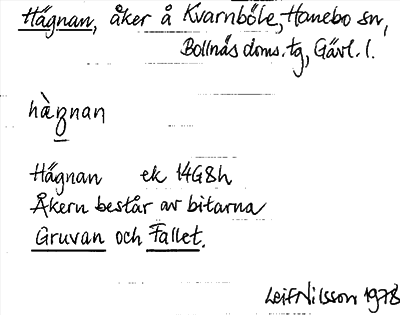 Hägnan, åker å Kvarnböle, Hanebo sn,
Bollnäs doms. tg, Gävl. l.
hàŋnan
Hägnan ek 14G8h
Åkern består av bitarna
Gruvan och Fallet.
Leif Nilsson 1978